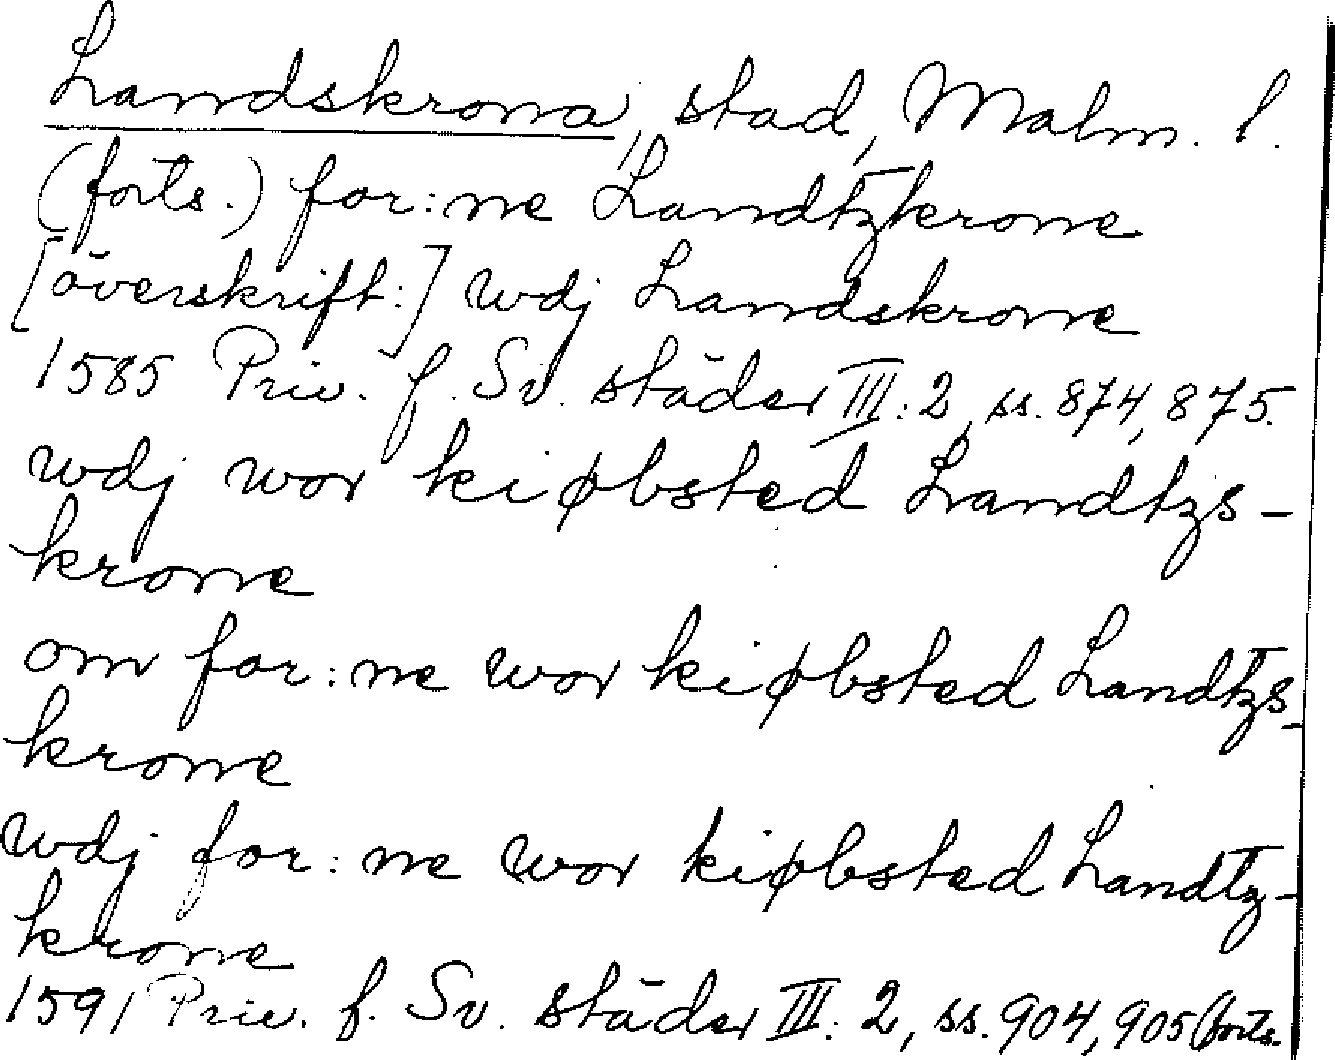 Landskrona, stad, Malm. l.
(forts.) for:ne Landtzkrone
[överskrift:] wdj Landskrone
1585 Priv. f. Sv. städer III:2, ss. 874, 875.
wdj wor kiøbsted Landtzs-
krone
om for:ne wor kiøbsted Landtzs-
krone
wdj for:ne wor kiøbsted Landtz-
krone
1591 Priv. f. Sv. städer III:2, ss. 904, 905 (forts.